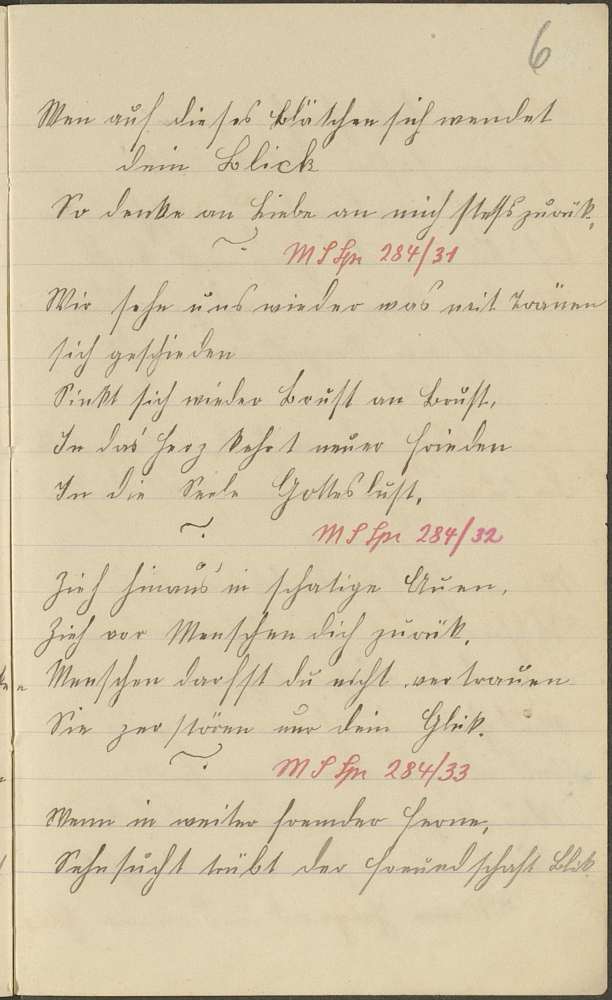 6
Wen auf dieses Blätchen sich wendet
dein Blick
So denke an Liebe an mich stets zurük.
M S Spr 284/31
Wir sehn uns wieder was mit Tränen
sich geschieden
Sinkt sich wieder Brust an Brust,
In das Herz kehrt neuer Frieden
In die Seele Gotteslust.
M S Spr 284/32
Zieh hinaus in schatige Auen,
Zieh vor Menschen dich zurük.
Menschen darfst du nicht vertrauen
Sie zerstören nur dein Glük.
M S Spr 284/33
Wenn in weiter fremder Ferne,
Sehnsucht trübt der Freundschaft Blik